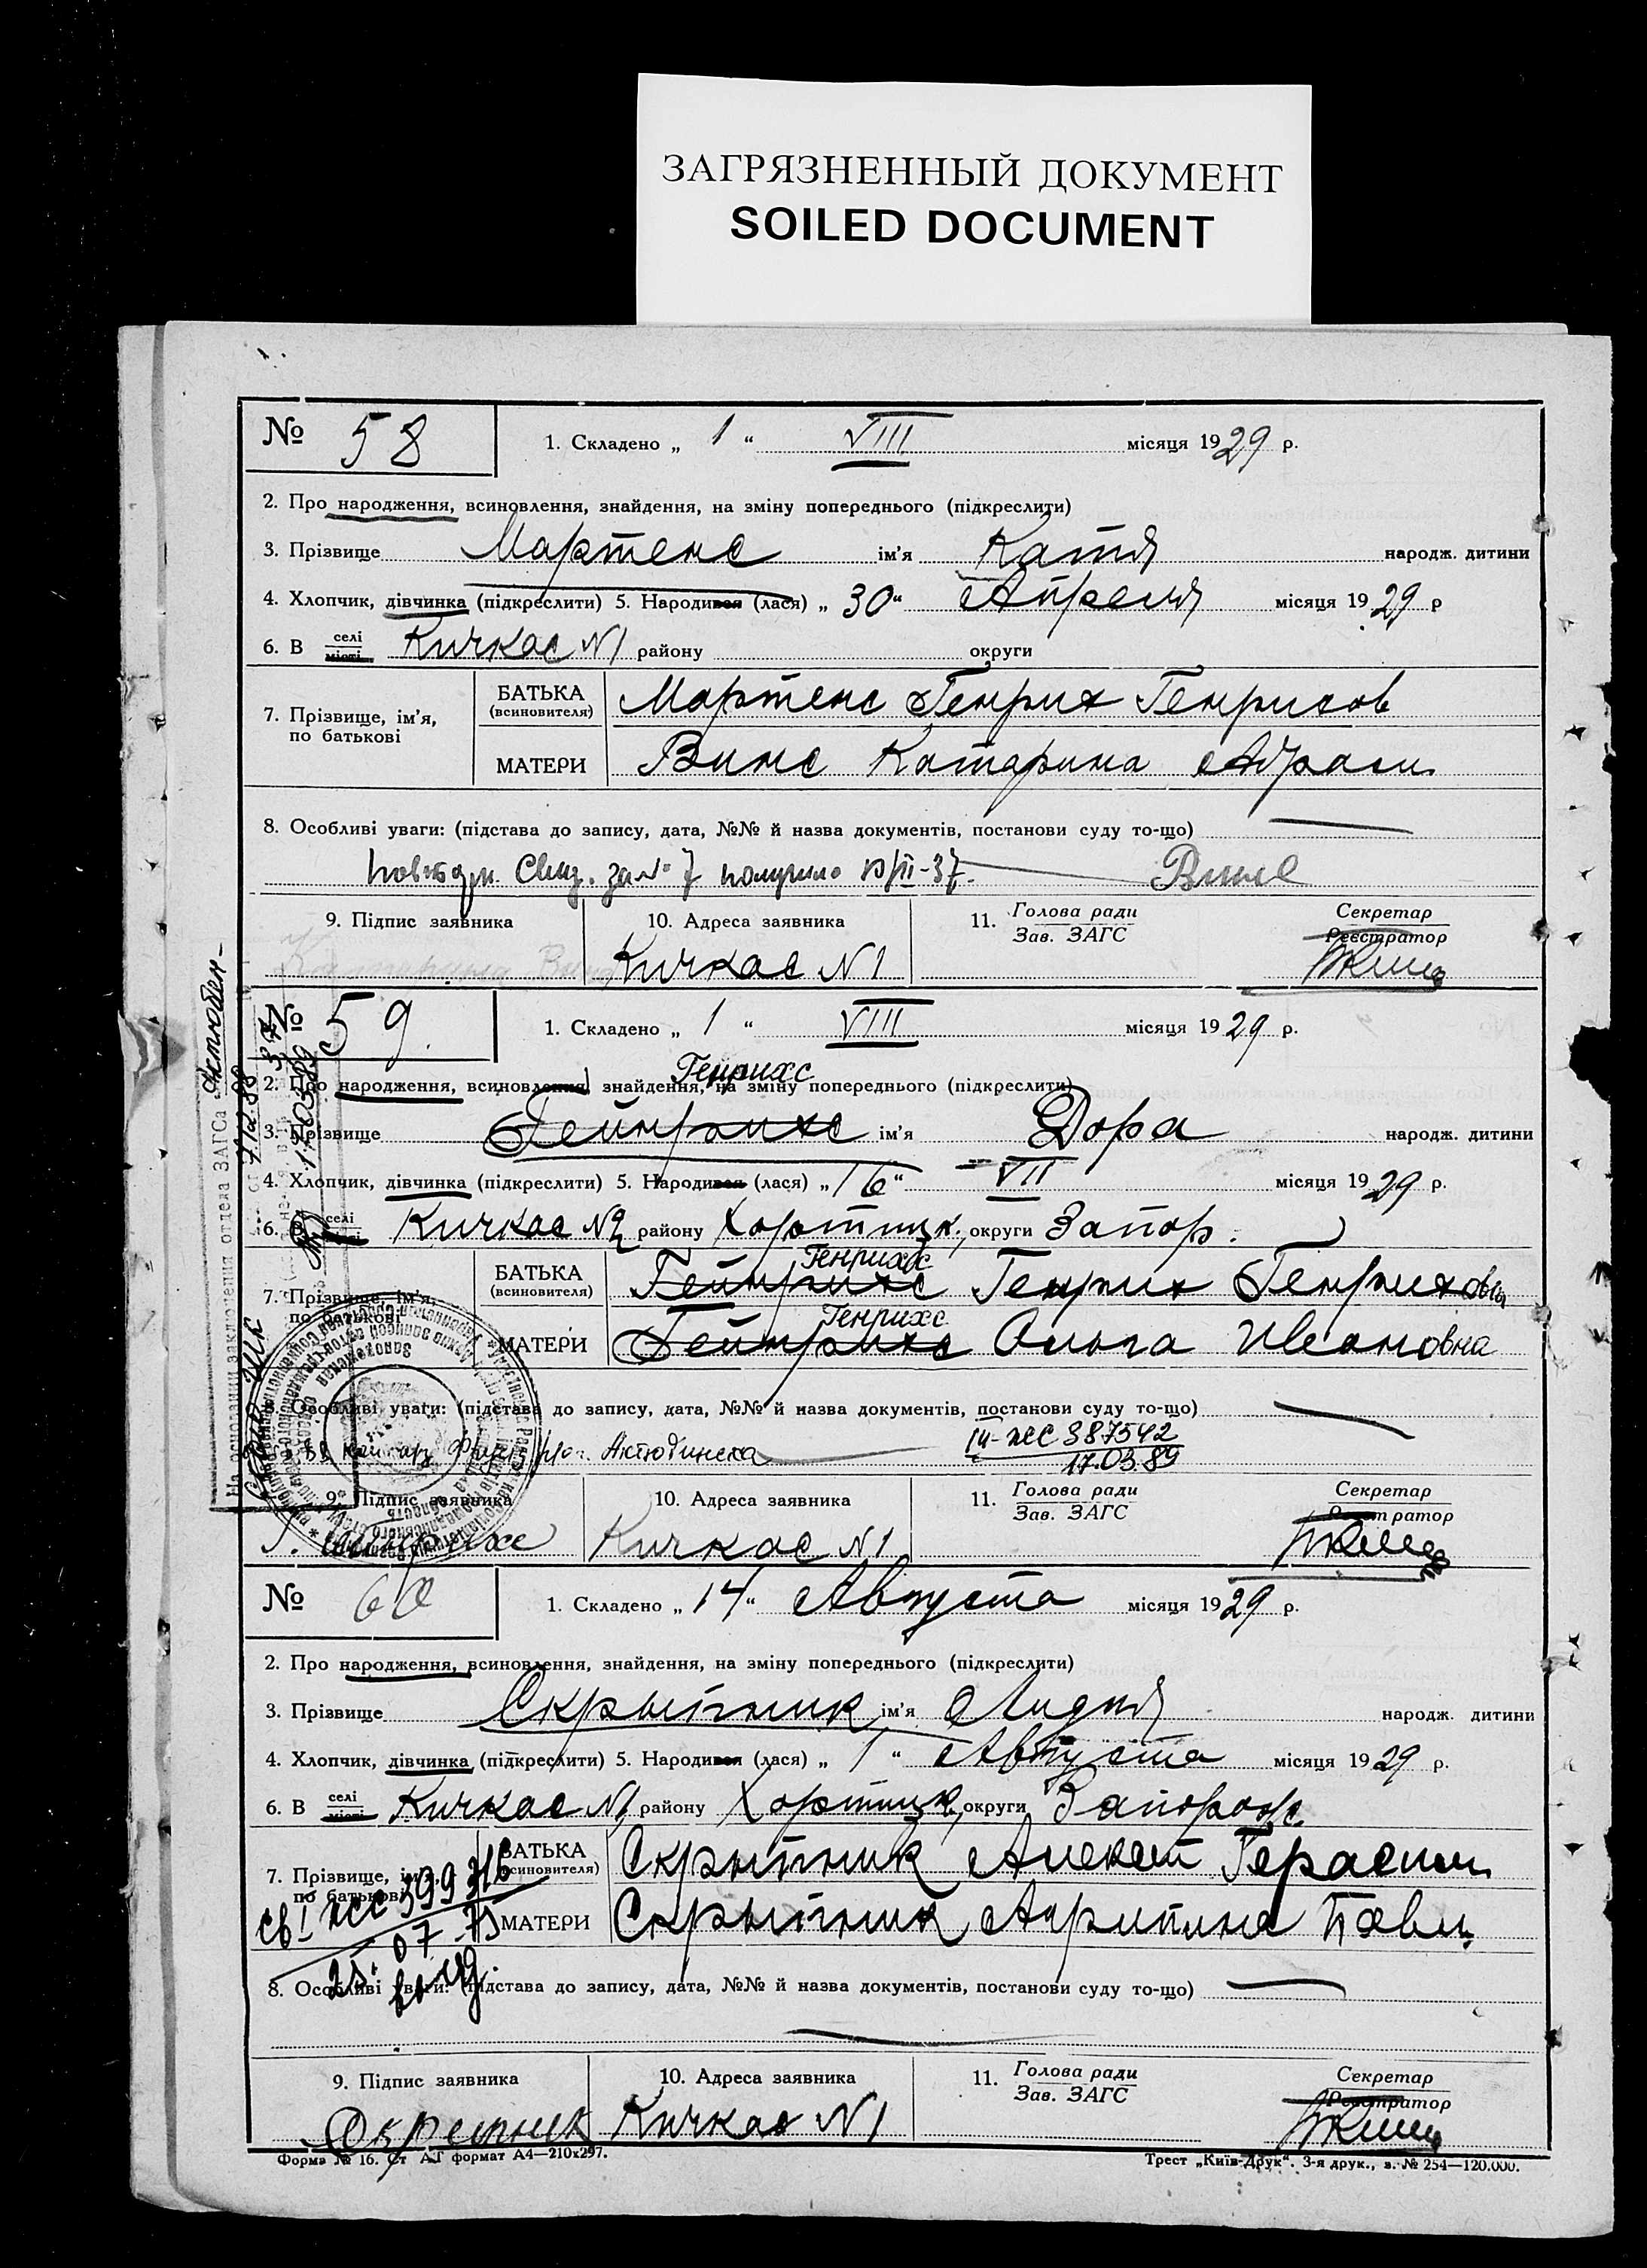 ЗАГРЯЗНЕННЫЙ ДОКУМЕНТ
SOILED DOCUMENT
№ 58
1. Складено „ 1 “ VIII місяця 1929 р.
2. Про народження, всиновлення, знайдення, на зміну попереднього (підкреслити)
3. Прізвище Мартенс ім’я Катя народж. дитини
4. Хлопчик, дівчинка (підкреслити) 5. Народився (лася) „ 30 “ Апреля місяця 1929 р
6. В селі місті Кичкас N1 району округи
7. Прізвище, ім’я, по батькові
БАТЬКА (всиновителя) Мартенс Генрих Генрихов
МАТЕРИ Винс Катарина Абрам
8. Особливі уваги: (підстава до запису, дата, №№ й назва документів, постанови суду то-що)
за № 7 получило Винс
9. Підпис заявника 10. Адреса заявника 11. Голова ради Зав. ЗАГС Секретар Реєстратор
Катарина Кичкас N1
№ 59.
1. Складено „ 1 “ VIII місяця 1929 р.
Генрихс
2. Про народження, всиновлення, знайдення, на зміну попереднього (підкреслити)
3. Прізвище Гейнрихс ім’я Дора народж. дитини
4. Хлопчик, дівчинка (підкреслити) 5. Народився (лася) „ 16 “ VII місяця 1929 р.
6. В селі Кичкас N2 району Хортицк., округи Запор.
Генрихс
7. Прізвище, ім’я, по батькові
БАТЬКА (всиновителя) Гейнрихс Генрих Генрихович
Генрихс
МАТЕРИ Гейнрихс Ольга Ивановна
8. Особливі уваги: (підстава до запису, дата, №№ й назва документів, постанови суду то-що)
Актюбинска IV-ЖС 387542
17.03.89
9. Підпис заявника 10. Адреса заявника 11. Голова ради Зав. ЗАГС Секретар Реєстратор
Кичкас N1
На основании заключения отдела ЗАГСа Актюбин-
7.12.88
№ 60
1. Складено „ 14 “ Августа місяця 1929 р.
2. Про народження, всиновлення, знайдення, на зміну попереднього (підкреслити)
3. Прізвище Скрыпник ім’я Лидия народж. дитини
4. Хлопчик, дівчинка (підкреслити) 5. Народився (лася) „ 1 “ Августа місяця 1929 р.
6. В селі місті Кичкас N1 району Хортицк, округи Запорож.
7. Прізвище, ім’я, по батькові
БАТЬКА (всиновителя) Скрыпник Алексей Герасим
МАТЕРИ Скрыпник Агрипина Павл.
8. Особливі уваги: (підстава до запису, дата, №№ й назва документів, постанови суду то-що)
9. Підпис заявника 10. Адреса заявника 11. Голова ради Зав. ЗАГС Секретар Реєстратор
Скрепник Кичкас N1
Форма № 16. Ст АТ формат А4—210х297.
Трест „Київ-Друк“. 3-я друк., з. № 254—120.000.